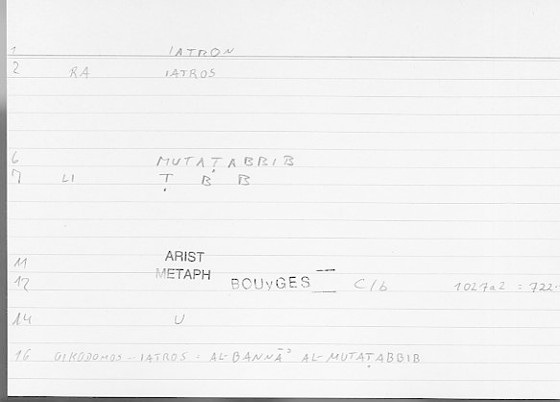 1 IATRON
2 RA IATROS
6 MUTAṬABBIB
7 LI Ṭ B B
11 ARIST
METAPH
12 BOUyGES C/b 1027a2 = 722.
14 U
16 OIKODOMOS - IATROS = AL-BANNĀʾ AL-MUTAṬABBIB